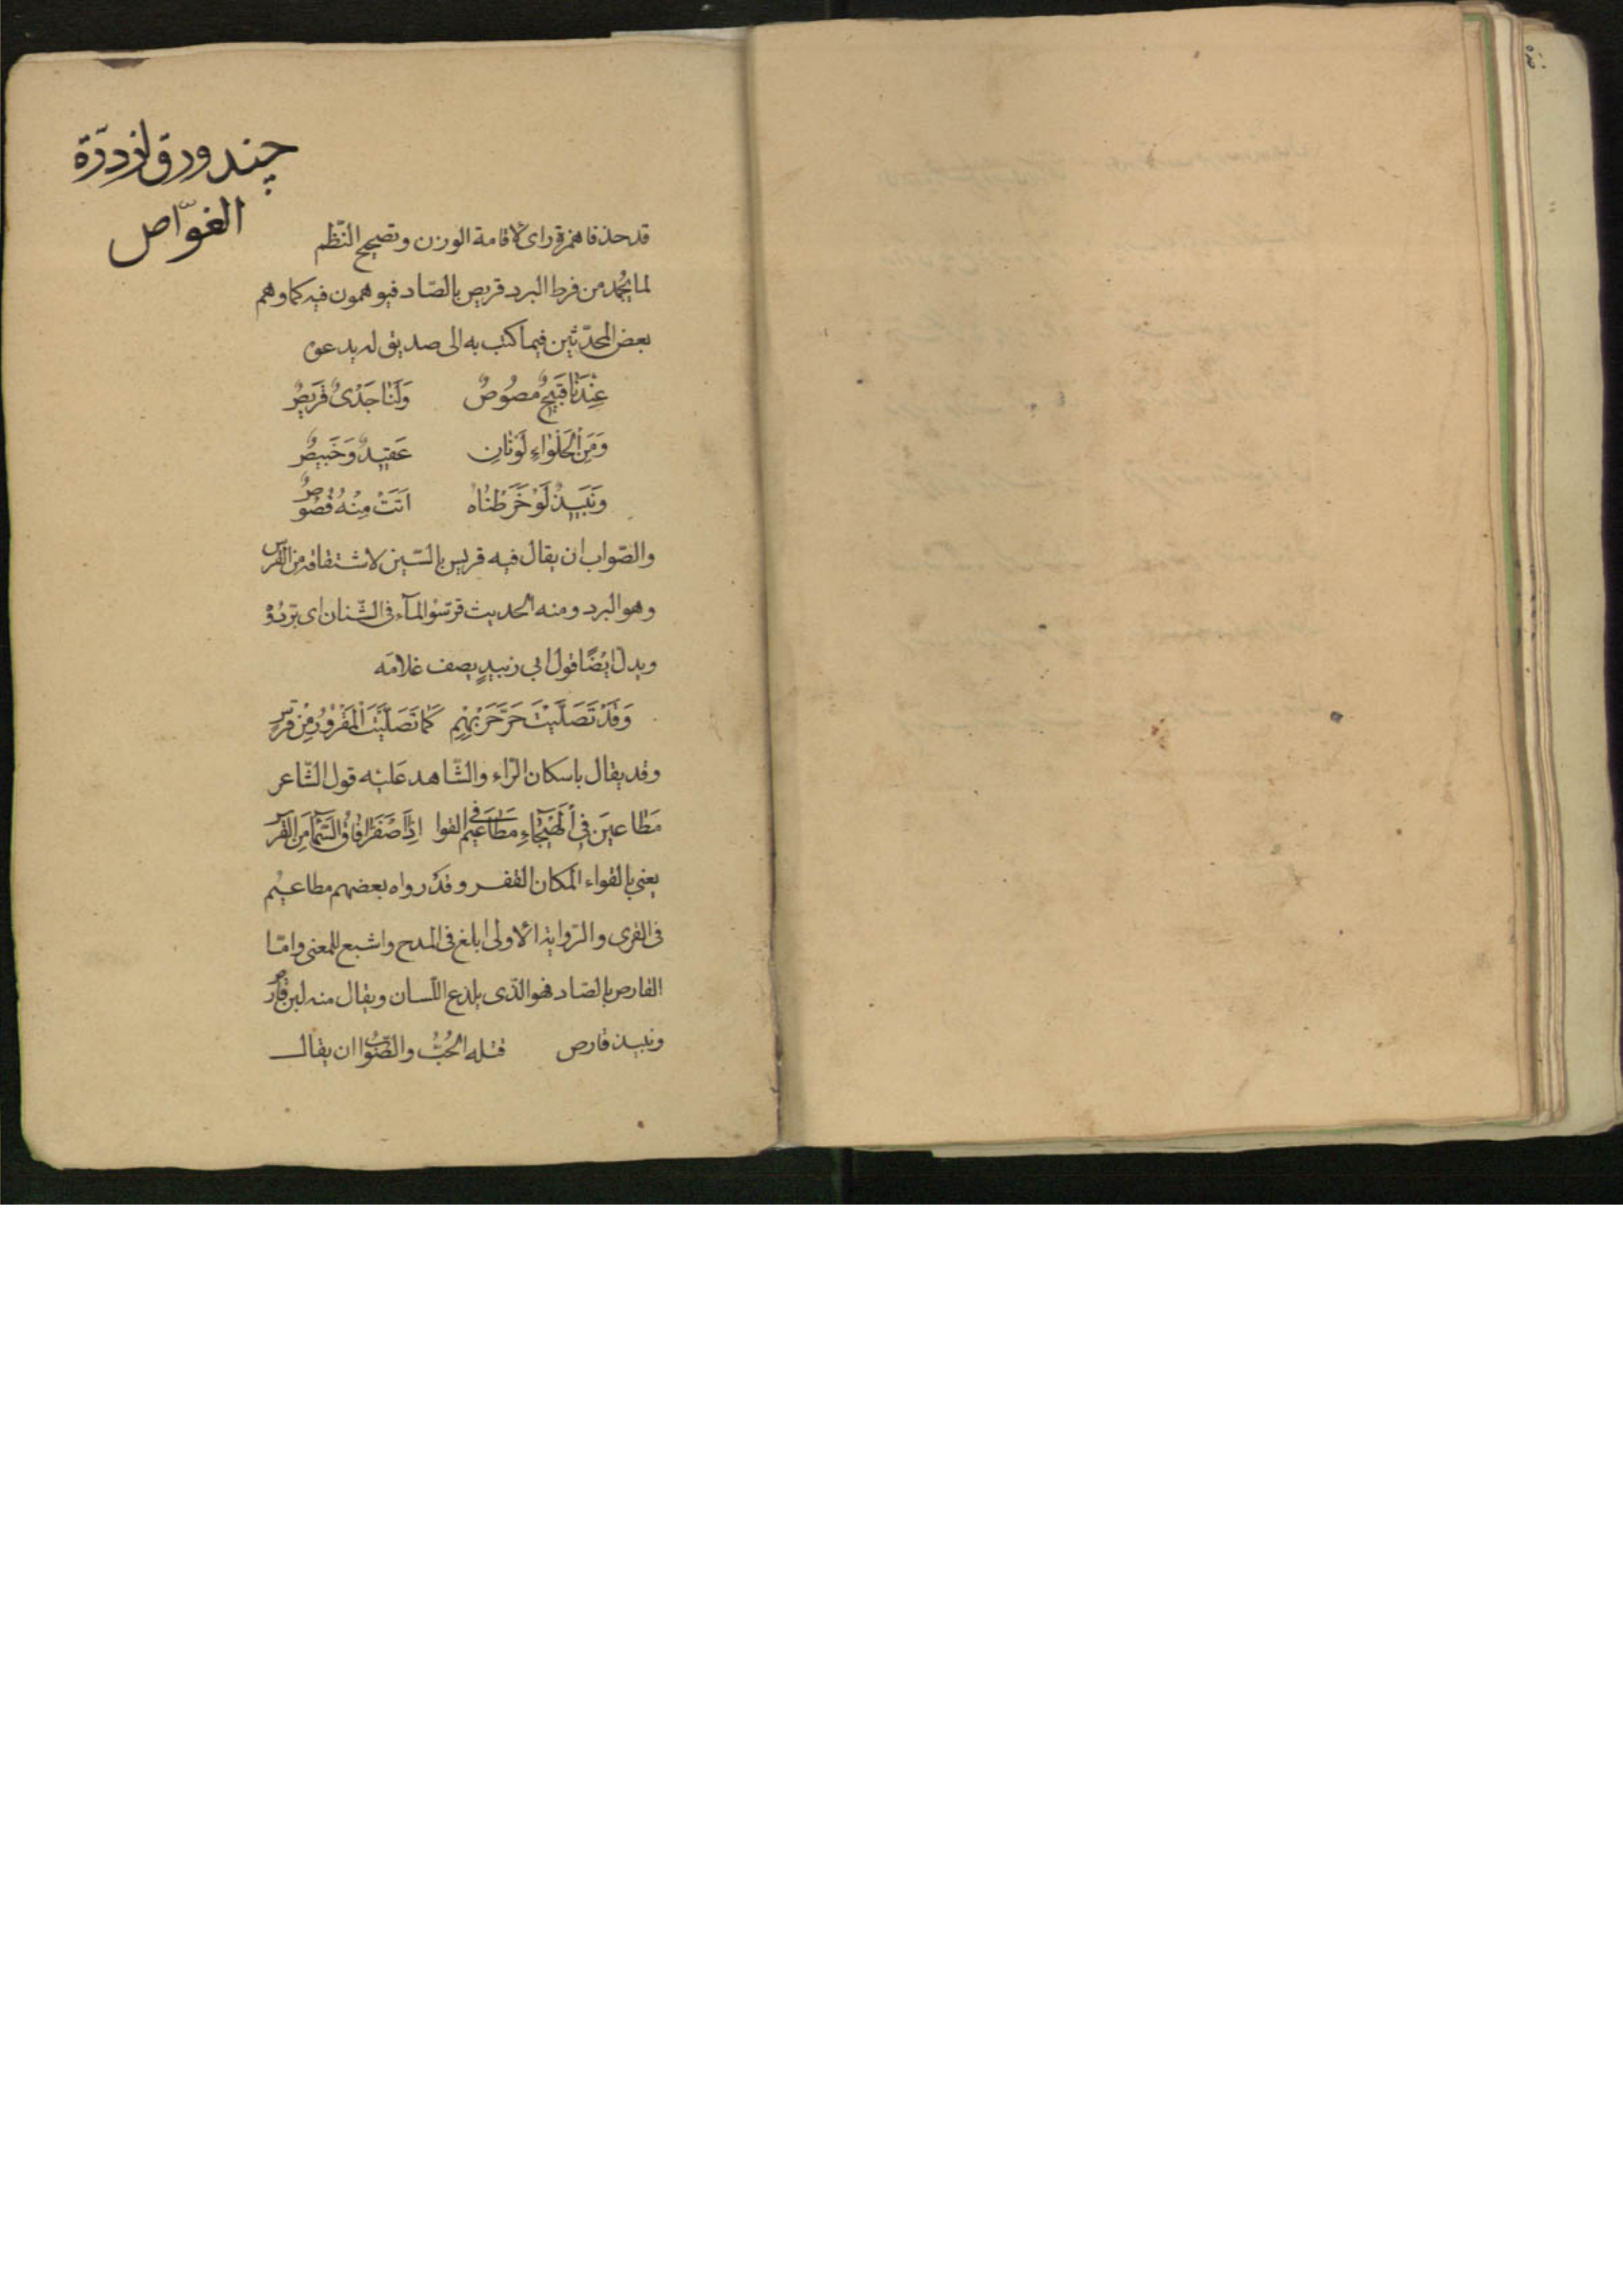 چند ورق از درّة
الغوّاص
قد حذفا همزة رأى لاقامة الوزن وتصحيح النّظم
لما يجمد من فرط البرد قريص بالصّاد فيوهمون فيه كما وهم
بعض المحدّثين فيما كتب به الى صديق له يدعوه
عِنْدَنَا قَبَجٌ مصُوصٌ وَلَنَا جَدْىٌ قَرِيصٌ
وَمِنَ الْحَلْوَاءِ لَوْنَانِ عَقِيدٌ وَخَبِيصٌ
وَنَبِيذٌ لَوْ خَرَطْنَاهُ اَتَتْ مِنْهُ فُصُوصٌ
والصّواب ان يقال فيه قريس بالسّين لاشتقاقه من القرس
وهو البرد ومنه الحديث قرّسوا المآء فى الشّنان اى برّدوْ
ويدل ايْضًا قول ابي زبيدٍ يصف غلامَه
وَقَدْ تَصَلَّيْتَ حَرَّ حَرْبِهِمِ كَمَا تَصَلَّيْتَ الْمَقْرُوْرُ مِنْ قَرَسِ
وقد يقال باسكان الرّاء والشّاهد عَليْه قول الشّاعر
مَطَاعِينَ فِى الْهَيْجَاءِ مَطَاعِيْم فى القوا اِذَا صْفَرَّ افَاقُ السَّمَاءِ مِنَ الْقَرْسِ
يعنى بالقواء المكان القفر وقَدْ رواه بعضهم مطاعيْم
فى القرى والرّواية الاولى ابلغ فى المدح واشبع للمعنى وامّا
القارص بالصّاد فهو الّذى يلذع اللّسان ويقال منه لبن قارص
ونبيذ قارص قتله الحُبُّ والصَّوَابُ ان يقال